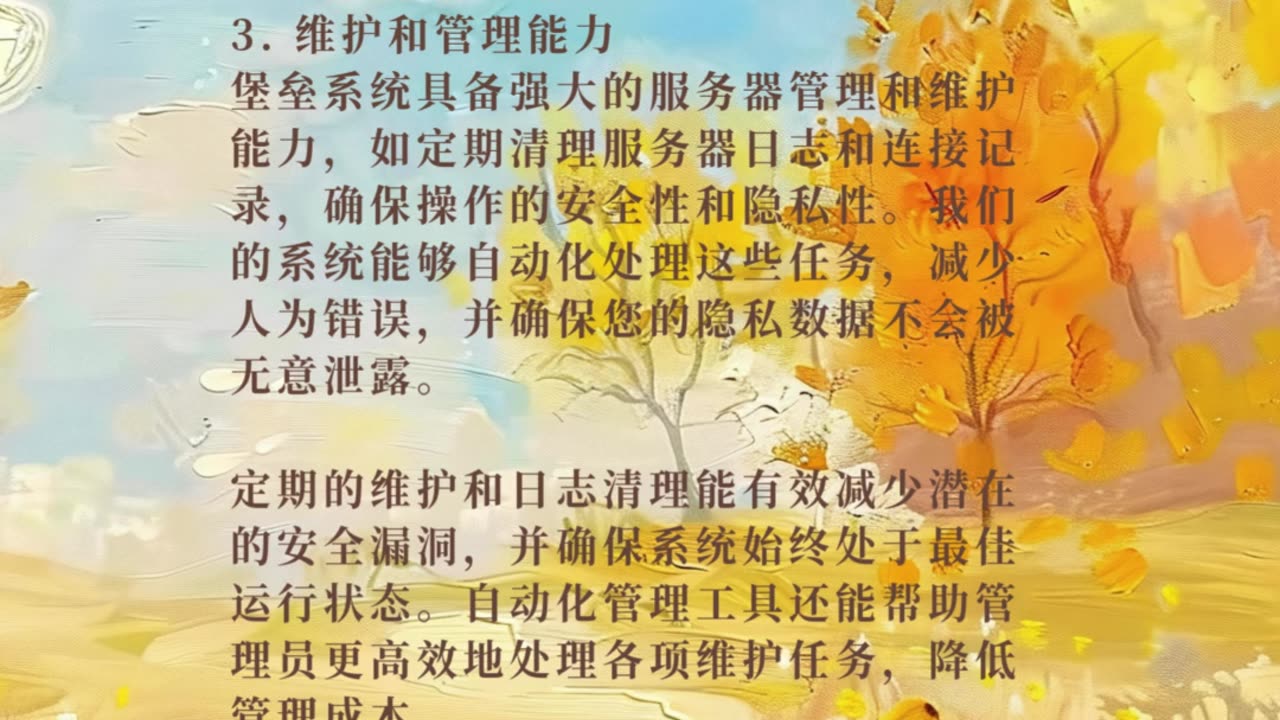 3. 维护和管理能力
堡垒系统具备强大的服务器管理和维护
能力，如定期清理服务器日志和连接记
录，确保操作的安全性和隐私性。我们
的系统能够自动化处理这些任务，减少
人为错误，并确保您的隐私数据不会被
无意泄露。
定期的维护和日志清理能有效减少潜在
的安全漏洞，并确保系统始终处于最佳
运行状态。自动化管理工具还能帮助管
理员更高效地处理各项维护任务，降低
管理成本